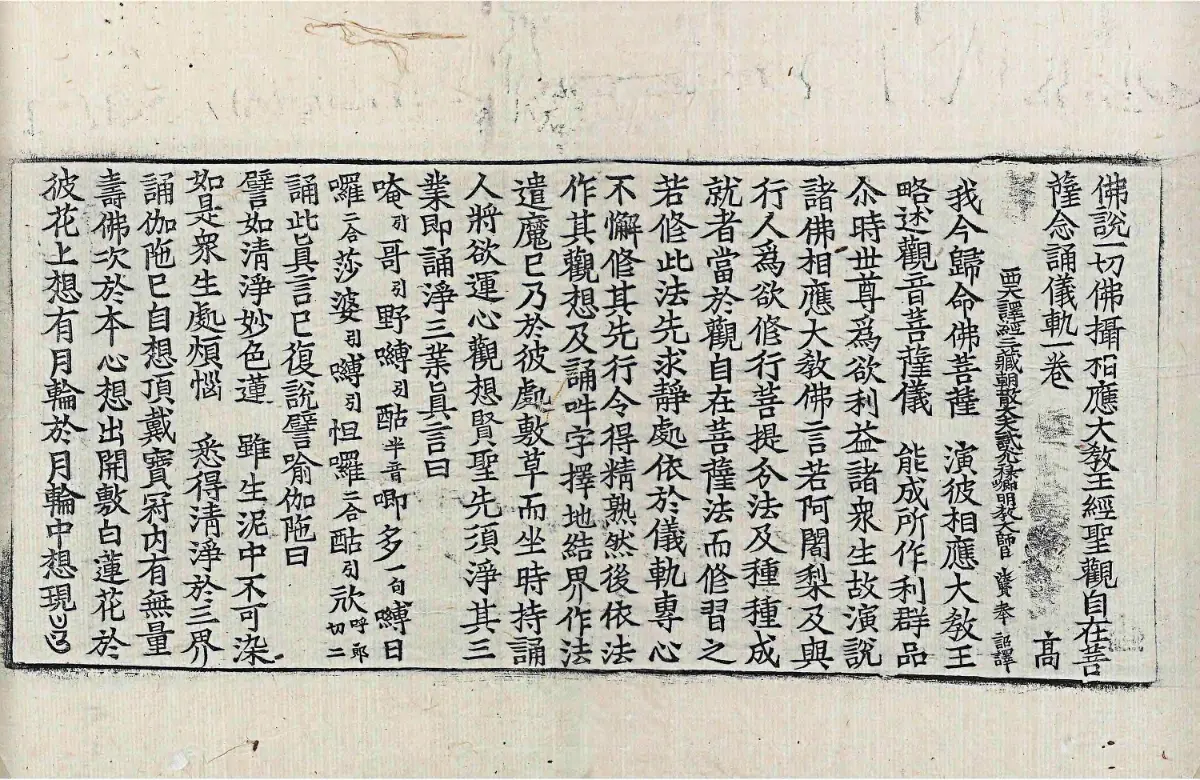 佛說一切佛攝相應大敎王經聖觀自在菩
薩念誦儀軌一卷 高
西天譯經三藏朝散大夫試光祿卿明敎大師臣 法賢奉 詔譯
我今歸命佛菩薩 演彼相應大敎王
略述觀音菩薩儀 能成所作利群品
尒時世尊爲欲利益諸衆生故演說
諸佛相應大敎佛言若阿闍梨及與
行人爲欲修行菩提分法及種種成
就者當於觀自在菩薩法而修習之
若修此法先求靜處依於儀軌專心
不懈修其先行令得精熟然後依法
作其觀想及誦吽字擇地結界作法
遣魔巳乃於彼處敷草而坐時持誦
人將欲運心觀想賢聖先須淨其三
業即誦淨三業眞言曰
唵引哥引野嚩引酤半音唧多一句嚩日
囉二合莎婆引嚩引怛囉二合酤引㰠呼郎切二
誦此眞言巳復說譬喻伽陁曰
譬如清淨妙色蓮 雖生泥中不可染
如是衆生處煩惱 悉得清淨於三界
誦伽陁巳自想頂戴寶冠內有無量
壽佛次於本心想出開敷白蓮花於
彼花上想有月輪於月輪中想現